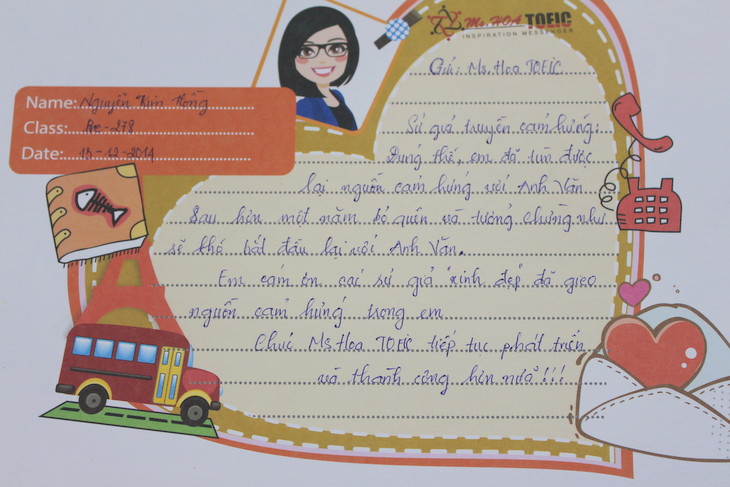 Ms. HOA TOEIC
INSPIRATION MESSENGER
Name: Nguyễn Kim Hồng
Class: Pre-278
Date: 13-12-2014
Gửi: Ms. Hoa TOEIC
Sứ giả truyền cảm hứng:
Đúng thế, em đã tìm được
lại nguồn cảm hứng với Anh Văn.
Sau hơn một năm bỏ quên và tưởng chừng như
sẽ khó bắt đầu lại với Anh Văn.
Em cám ơn các sứ giả "xinh đẹp" đã gieo
nguồn cảm hứng trong em
Chúc Ms Hoa TOEIC tiếp tục phát triển
và thành công hơn nữa!!!